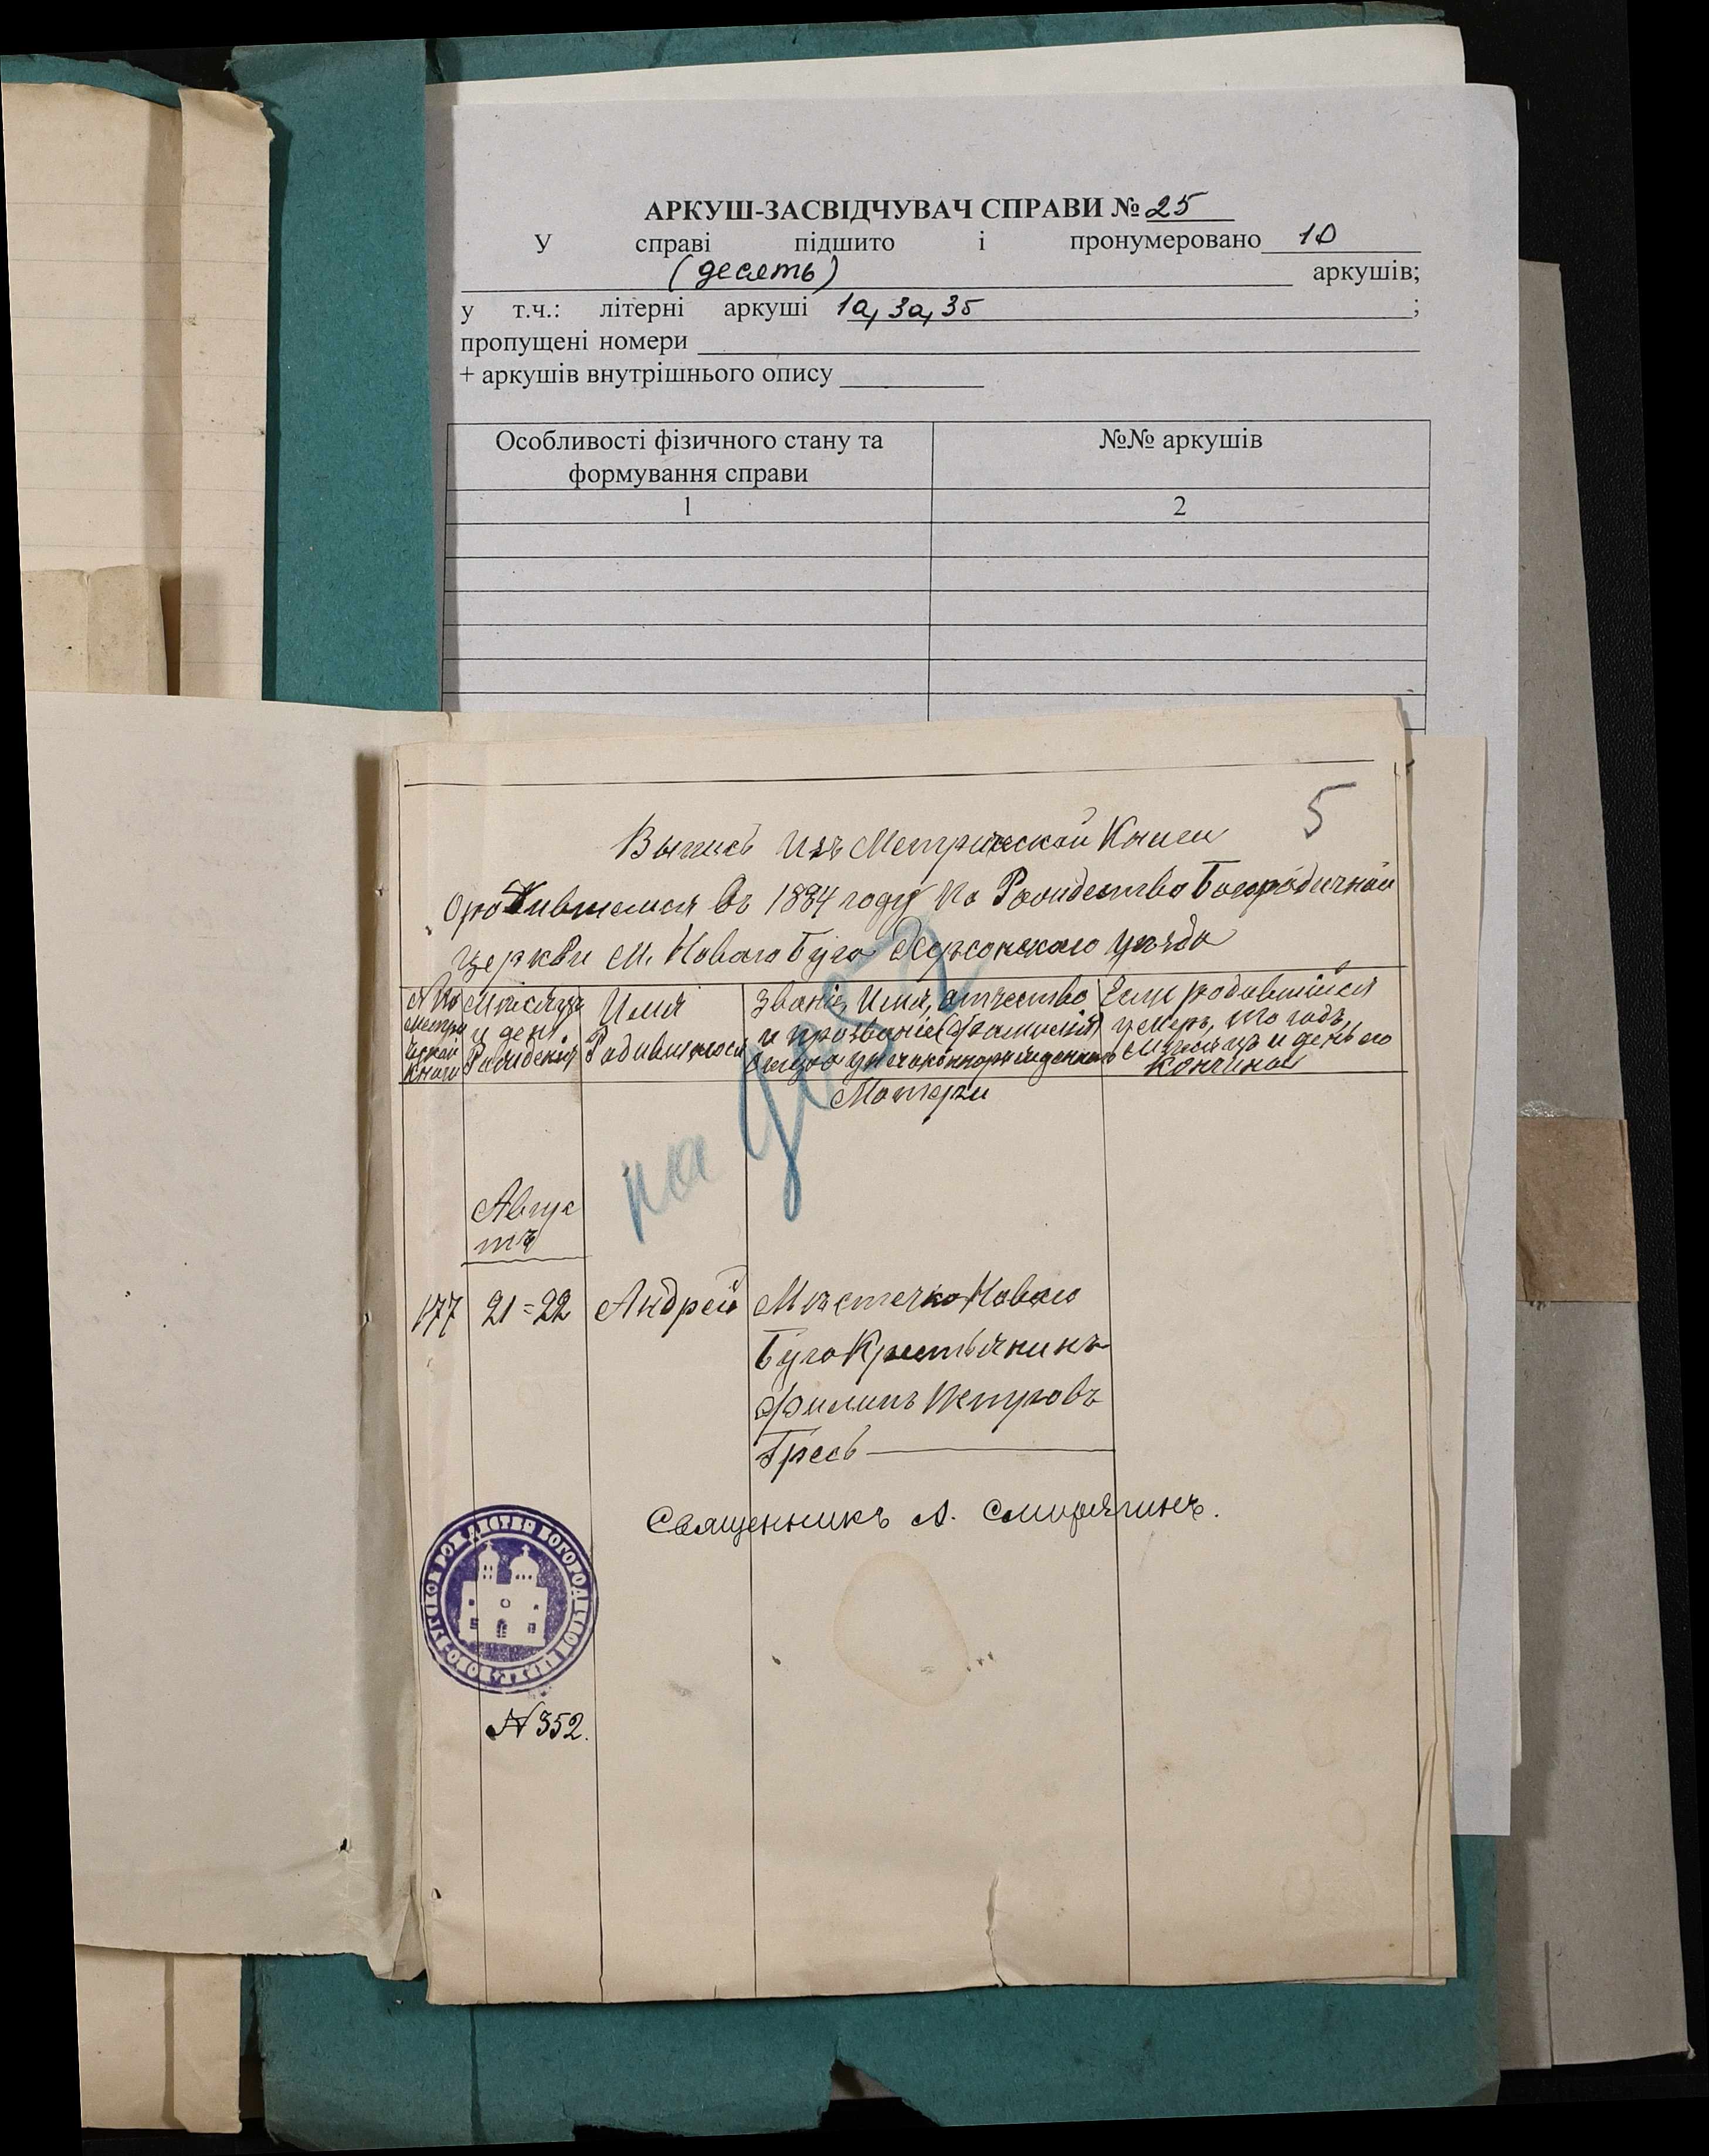 АРКУШ-ЗАСВІДЧУВАЧ СПРАВИ № 25
У справі підшито і пронумеровано 10
(десять) аркушів;
у т.ч.: літерні аркуші 1а, 3а, 3б ;
пропущені номери
+ аркушів внутрішнього опису
Особливості фізичного стану та формування справи
№№ аркушів
1 2
5
Выпись Изъ Метрической Книги
О родившемся въ 1884 году По Рождество Богородичной
Церкви М. Новаго Буга Херсонскаго уезда
№ по Метрической Книги
Месяцъ и день Рождения
Имя Родившегося
Званіе, Имя, отчество и прозваніе (фамилія) отца, а у незаконнорожденнаго Матери
Если родившійся умеръ, то годъ, месяцъ и день его кончины
на
Авгус
тъ
177 21=22 Андрей Местечка Новаго
Буга Крестьянинъ
Филипъ Петровъ
Гресь
Священникъ А. Смирягинъ.
№ 352.